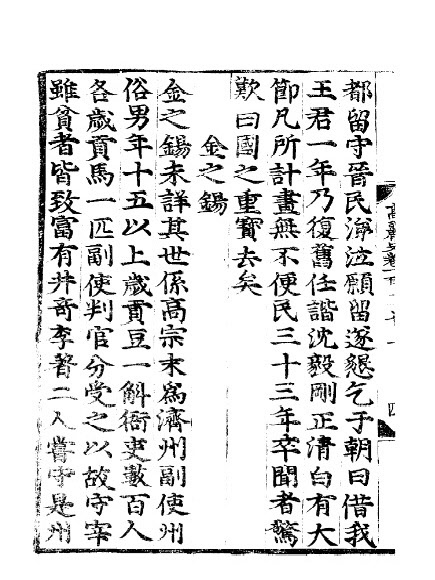 都留守晉民涕泣願留遂懇乞于朝曰借我
王君一年乃復舊任諧沈毅剛正清白有大
節凡所計畫無不便民三十三年卒聞者驚
歎曰國之重寶去矣
金之鍚
金之鍚未詳其世係高宗末爲濟州副使州
俗男年十五以上歲貢豆一斛衙吏數百人
各歲貢馬一匹副使判官分受之以故守宰
雖貧者皆致富有井奇李著二人嘗守是州